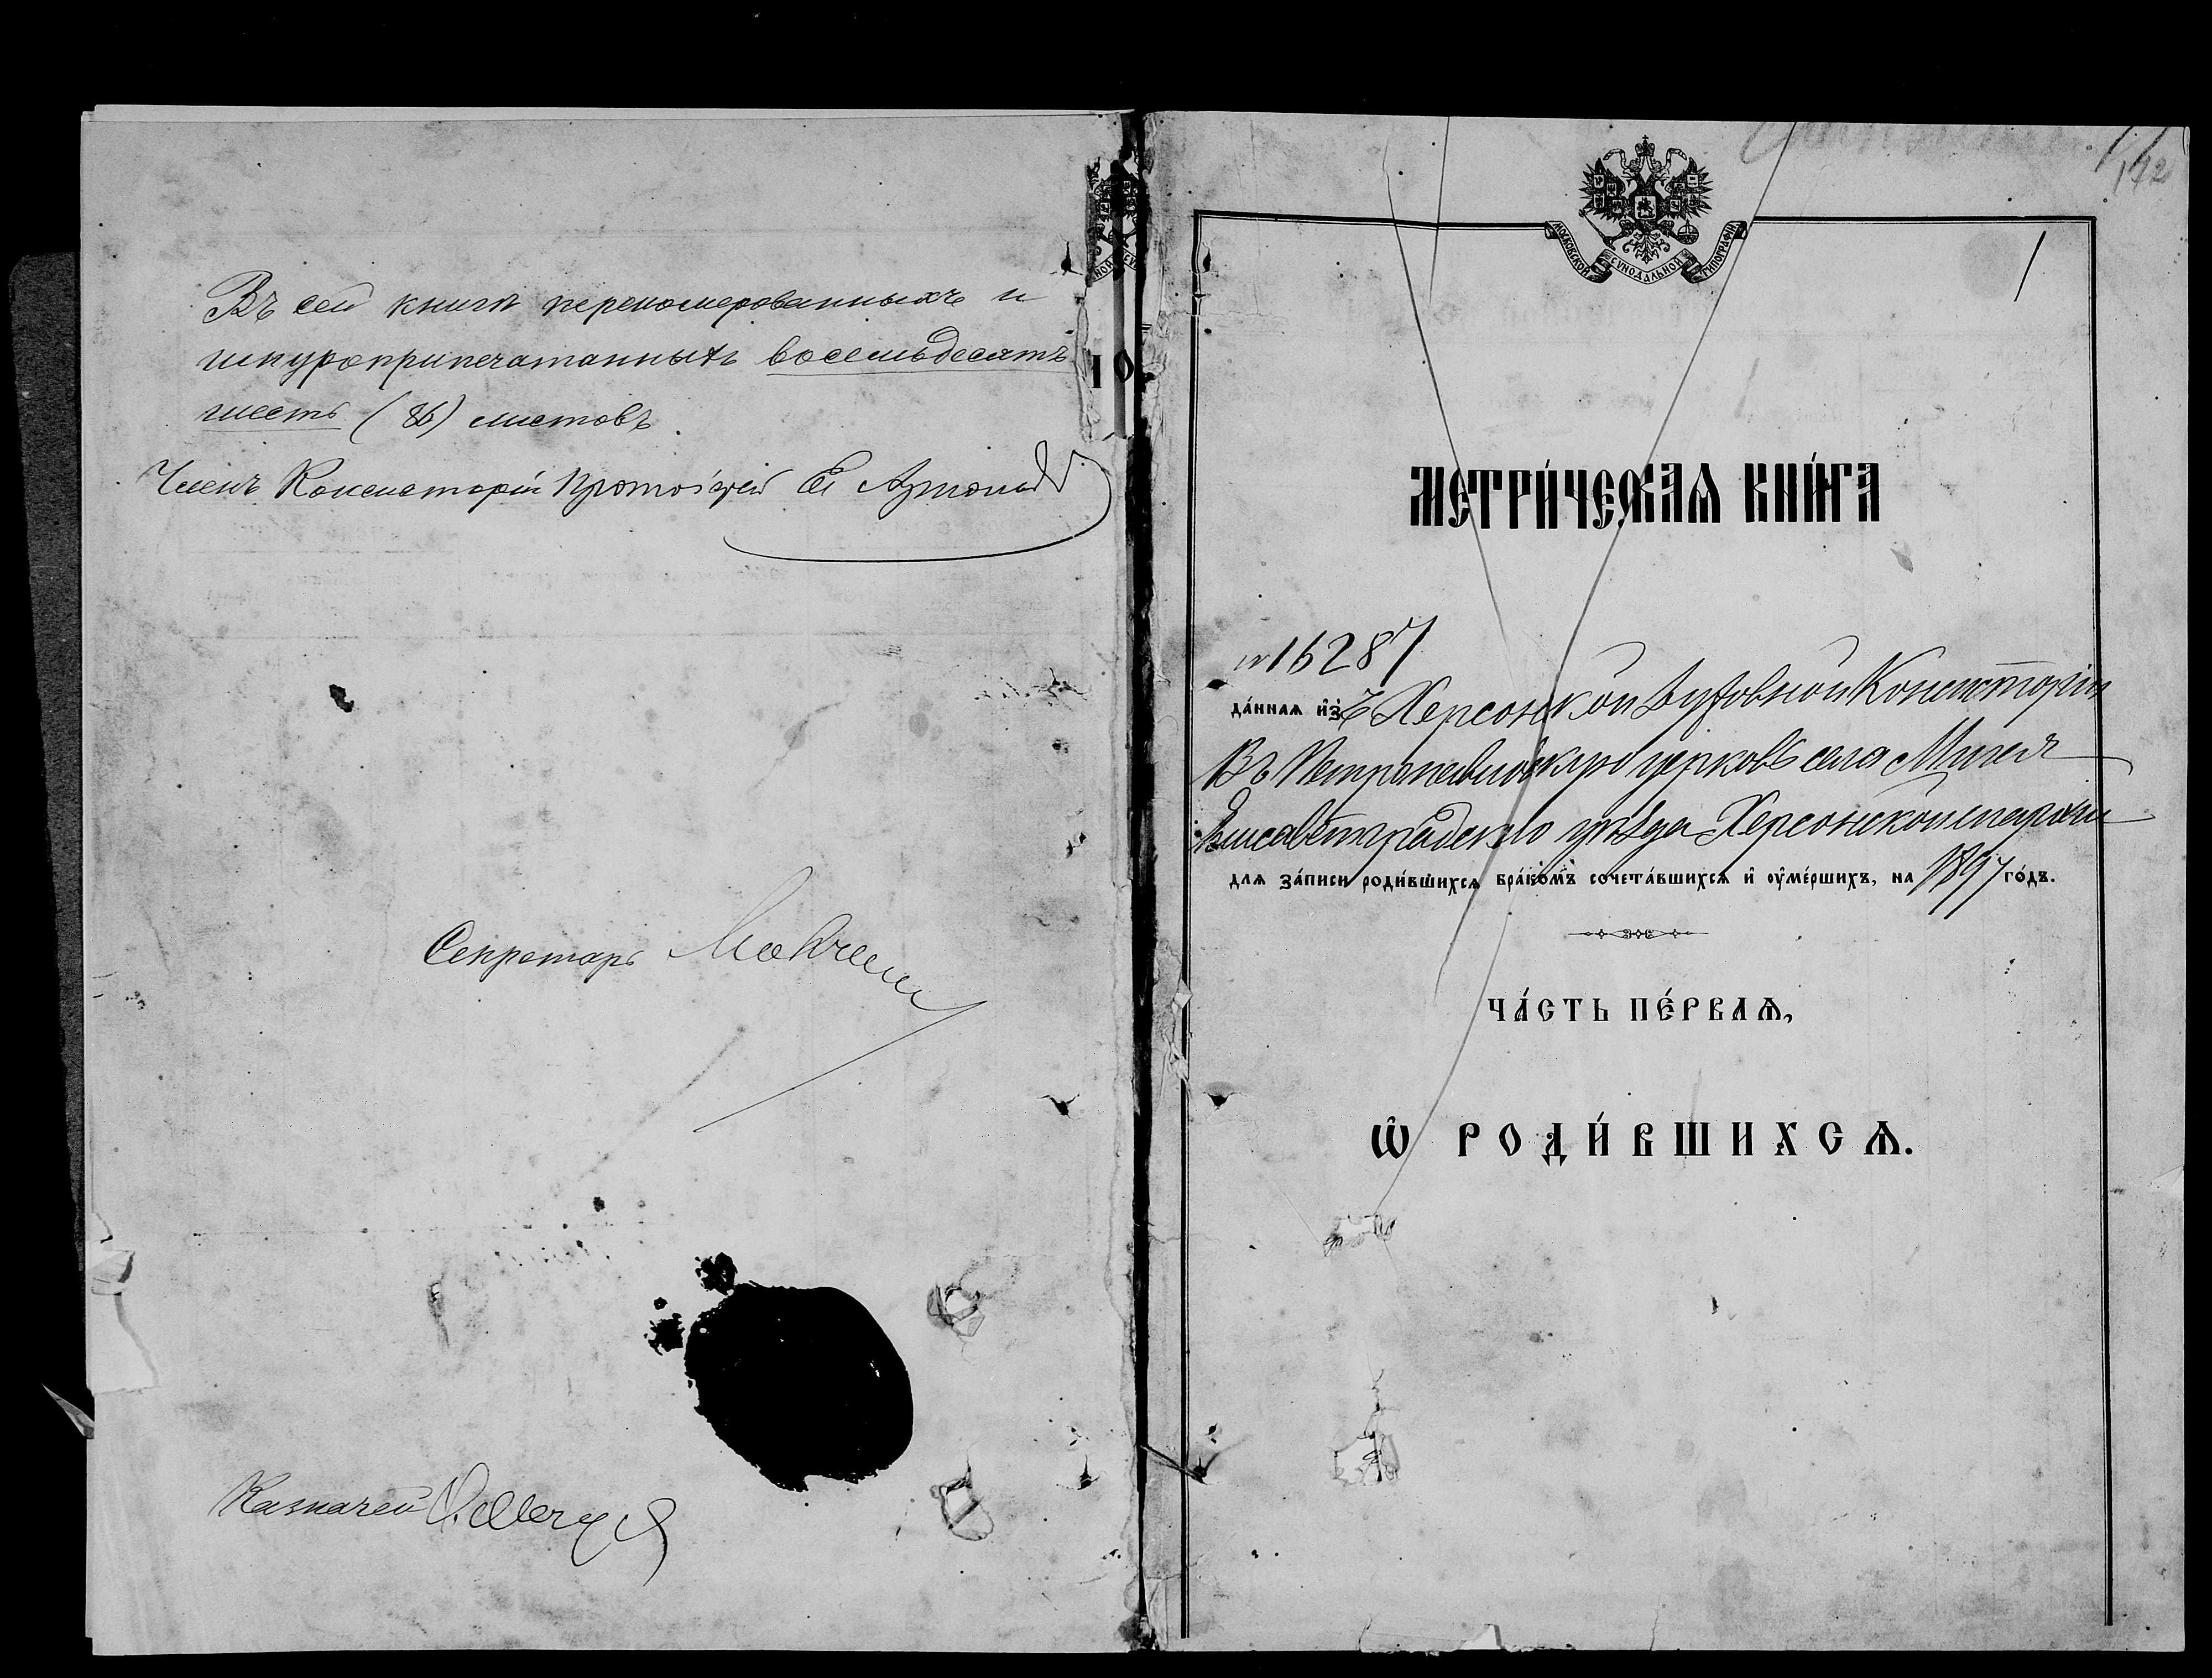 Въ сей книгѣ переномерованныхъ и
шнуроприпечатанныхъ восемьдесятъ
шесть (86) листовъ.
Членъ Консисторіи Протоіерей
Секретарь
Казначей
МОСКОВСКОЙ СѴНОДАЛЬНОЙ ТИПОГРАФІИ
1
МЕТРИ́ЧЕСКАѦ КНИ́ГА
№ 16287
да́ннаѧ и҆зъ Херсонской Духовной Консисторіи
Въ Петропавловскую церковь села Мигея
Елисаветградскаго уѣзда Херсонской епархіи
длѧ за́писи роди́вшихсѧ бра́комъ сочета́вшихсѧ и҆ ᲂу҆ме́ршихъ, на 1897 го́дъ.
ЧА́СТЬ ПЕ́РВАѦ,
Ѡ҆ РОДИ́ВШИХСѦ.